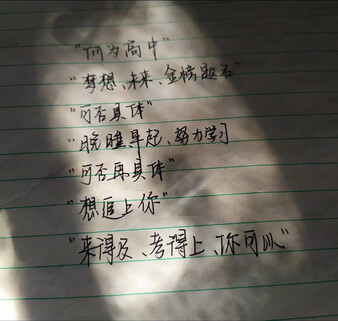 "何为高中"
"梦想、未来、金榜题名"
"可否具体"
"晚睡早起、努力学习
"可否再具体"
"想追上你"
"来得及、考得上、你可以"